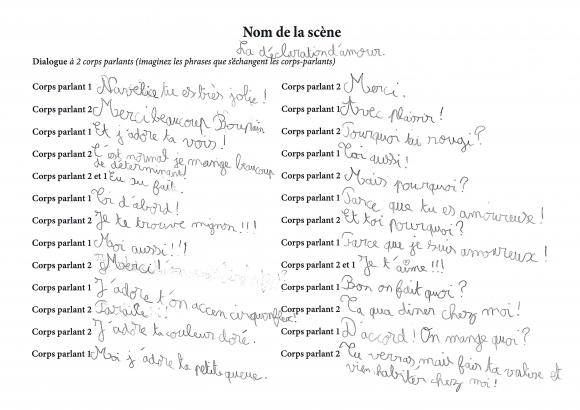 Nom de la scène
La déclaration d'amour.
Dialogue à 2 corps parlants (imaginez les phrases que s'échangent les corps-parlants)
Corps parlant 1 tu es très jolie !
Corps parlant 2 Merci beaucoup
Corps parlant 1 Et j'adore ta voix !
Corps parlant 2 C'est normal je mange beaucoup
de déterminant!
Corps parlant 2 et 1 Eu au fait.
Corps parlant 1 Toi d'abord !
Corps parlant 2 Je te trouve mignon !!!
Corps parlant 1 Moi aussi !!!
Corps parlant 2 Merci !
Corps parlant 1 J'adore t'on accen circonflexe!
Corps parlant 2 Pareille !!
Corps parlant 2 J'adore ta couleur doré.
Corps parlant 1 Moi j'adore ta petite queue.
Corps parlant 2 Merci.
Corps parlant 1 Avec plaisir!
Corps parlant 2 Pourquoi tu rougi ?
Corps parlant 1 Toi aussi !
Corps parlant 2 Mais pourquoi ?
Corps parlant 1 Parce que tu es amoureuse !
Corps parlant 2 Et toi pourquoi ?
Corps parlant 1 Parce que je suis amoureux !
Corps parlant 2 et 1 Je t'aime !!!
Corps parlant 1 Bon on fait quoi ?
Corps parlant 2 Ta qua diner chez moi !
Corps parlant 1 D'accord ! On mange quoi ?
Corps parlant 2 Tu verras, mais fais ta valise et
vien habiter chez moi !